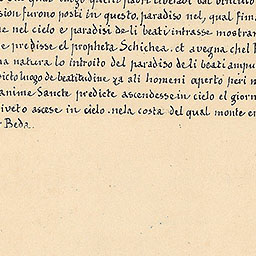 sion furono posti in questo, paradiso nel, qual fim
e nel cielo e paradisi de li beati intrasse mostrar
e predisse el propheta Schichea. et avegna chel
na natura lo introito del paradiso de li beati ampu
icto luogo de beatitudine za ali homeni aperto per i
anime Sancte predicte ascendesse in cielo el giorn
iveto ascese in cielo. nela costa del qual monte e
Beda.